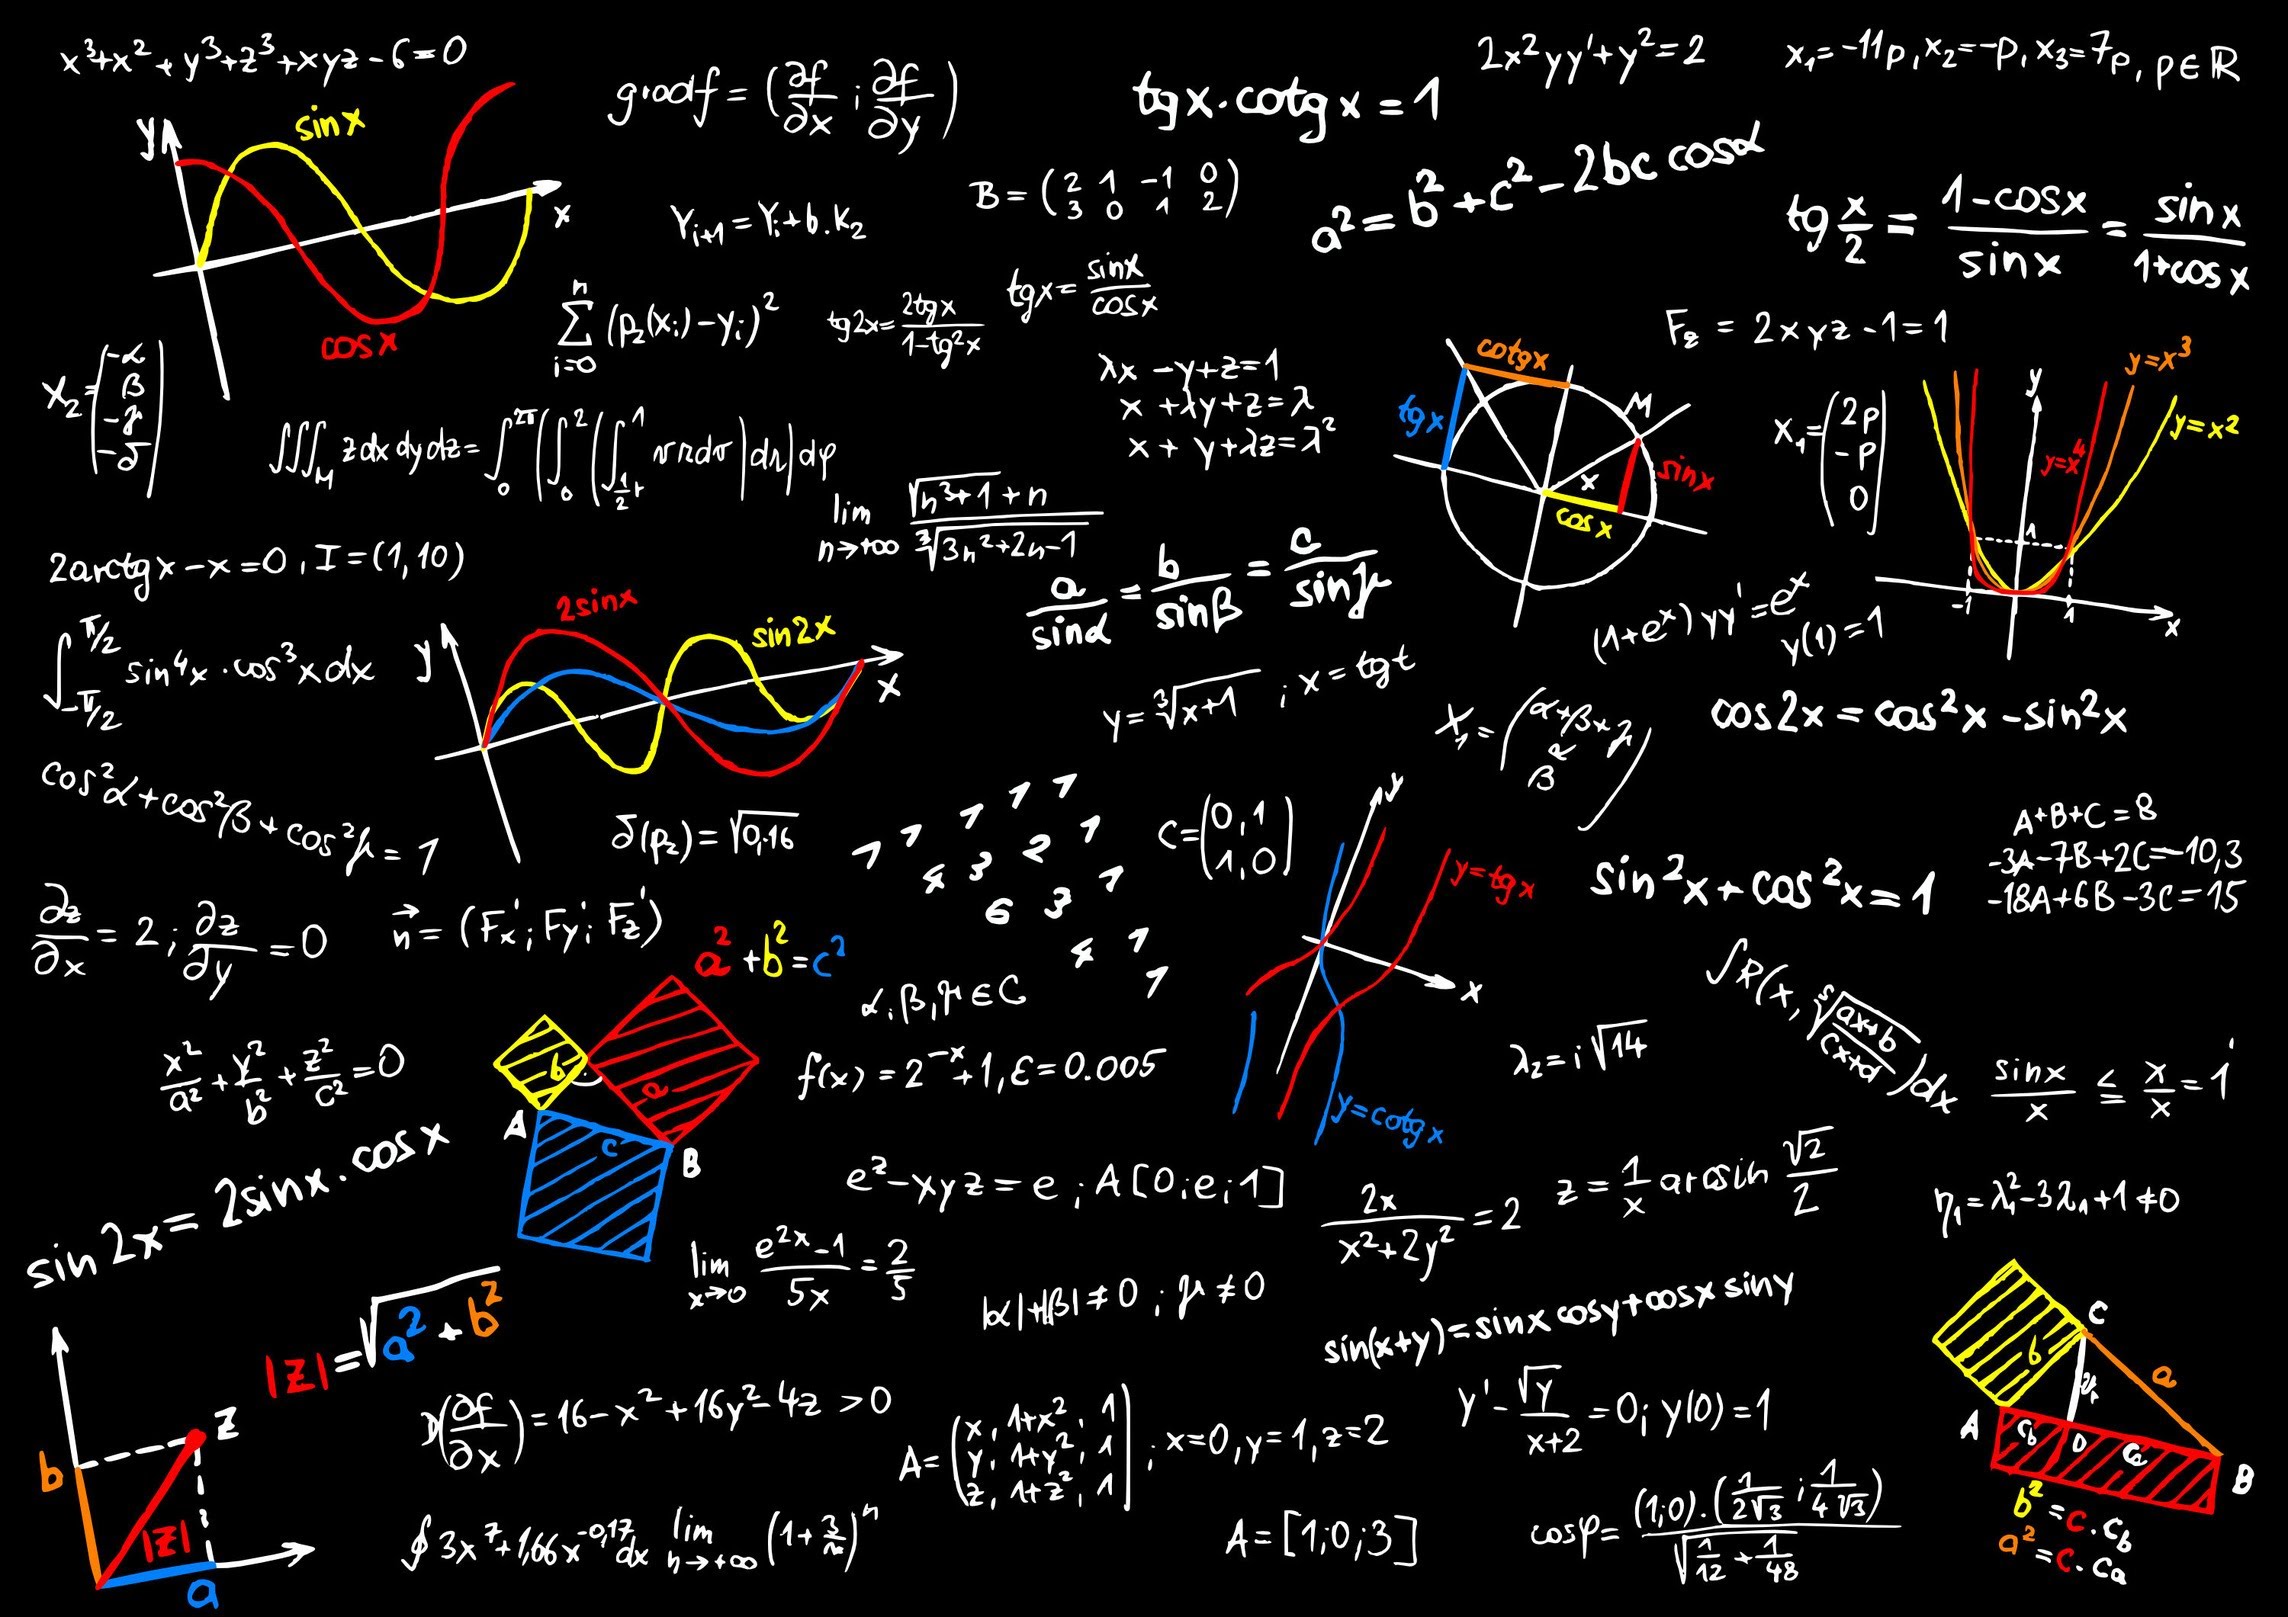 x³+x²+y³+z³+xyz-6=0
gradf = (∂f/∂x ; ∂f/∂y)
tgx·cotgx = 1
2x²yy'+y²=2
x₁=-11p, x₂=-p, x₃=7p, p∈ℝ
y
sinx
x
cosx
Yᵢ₊₁=Yᵢ+b.K₂
B = (2 1 -1 0
3 0 1 2)
a² = b²+c²-2bc cosα
tg x/2 = (1-cosx)/sinx = sinx/(1+cosx)
X₂=(-α
β
-γ
-δ)
∑ i=0 n (p₂(xᵢ)-yᵢ)²
tg2x = 2tgx/(1-tg²x)
tgx = sinx/cosx
λx -y+z=1
x +λy+z=λ
x + y+λz=λ²
cotgx
tgx
M
x
sinx
cosx
F₂ = 2xyz-1=1
X₁=(2p
-p
0)
y
y=x³
y=x⁴
y=x²
1
-1
1
x
∭_M zdxdydz=
2arctgx-x=0, I=(1,10)
lim n→+∞ (√(n³+1)+n)/∛(3n²+2n-1)
a/sinα = b/sinβ = c/sinγ
(1+eˣ)yy'=eˣ
y(1)=1
∫ -π/2 π/2 sin⁴x·cos³xdx
y
2sinx
sin2x
x
y=∛(x+1) ; x=tgt
X₁=(α+β+γ
α
β)
cos2x = cos²x-sin²x
cos²α+cos²β+cos²γ=1
δ(p₂)=√0,16
1 1 1 1 1
4 3 2 1
6 3 1
4 1
1
C=(0,1
1,0)
y
y=tgx
x
y=cotgx
sin²x+cos²x=1
A+B+C=8
-3A-7B+2C=-10,3
-18A+6B-3C=15
∂z/∂x=2; ∂z/∂y=0
n⃗=(Fx'; Fy'; Fz')
a²+b²=c²
b
a
A
c
B
α,β,γ∈C
∫R(x, ˢ√((ax+b)/(cx+d)))dx
x²/a²+y²/b²+z²/c²=0
f(x)=2⁻ˣ+1, ε=0.005
λ₂=i√14
sinx/x ≤ x/x = 1
sin2x=2sinx·cosx
e^z-xyz=e ; A[0;e;1]
2x/(x²+2y²)=2
z=1/x arcsin √2/2
η₁=λ₁²-3λ₁+1≠0
lim x→0 (e²ˣ-1)/5x = 2/5
|α|+|β|≠0 ; γ≠0
sin(x+y)=sinxcosy+cosxsiny
|z|=√(a²+b²)
z
b
|z|
a
D(∂f/∂x)=16-x²+16y²-4z >0
A=(x, 1+x², 1
y, 1+y², 1
z, 1+z², 1) ; x=0, y=1, z=2
y'-√y/(x+2)=0; y(0)=1
C
b
a
A
c_b
D
c_a
B
b²=c·c_b
a²=c·c_a
∮3x⁷+1,66x^-0,17dx
lim n→+∞ (1+3/n)ⁿ
A=[1;0;3]
cosφ=(1;0)·(1/2√3 ; 1/4√3)/√(1/12+1/48)